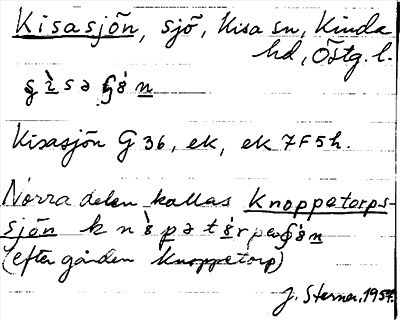 Kisasjön, sjö, Kisa sn, Kinda
hd, Östg. l.
Kisasjön G 36, ek, ek 7F5h.
Norra delen kallas Knoppetorps-
sjön
(efter gården Knoppetorp)
J. Sterner, 1954.